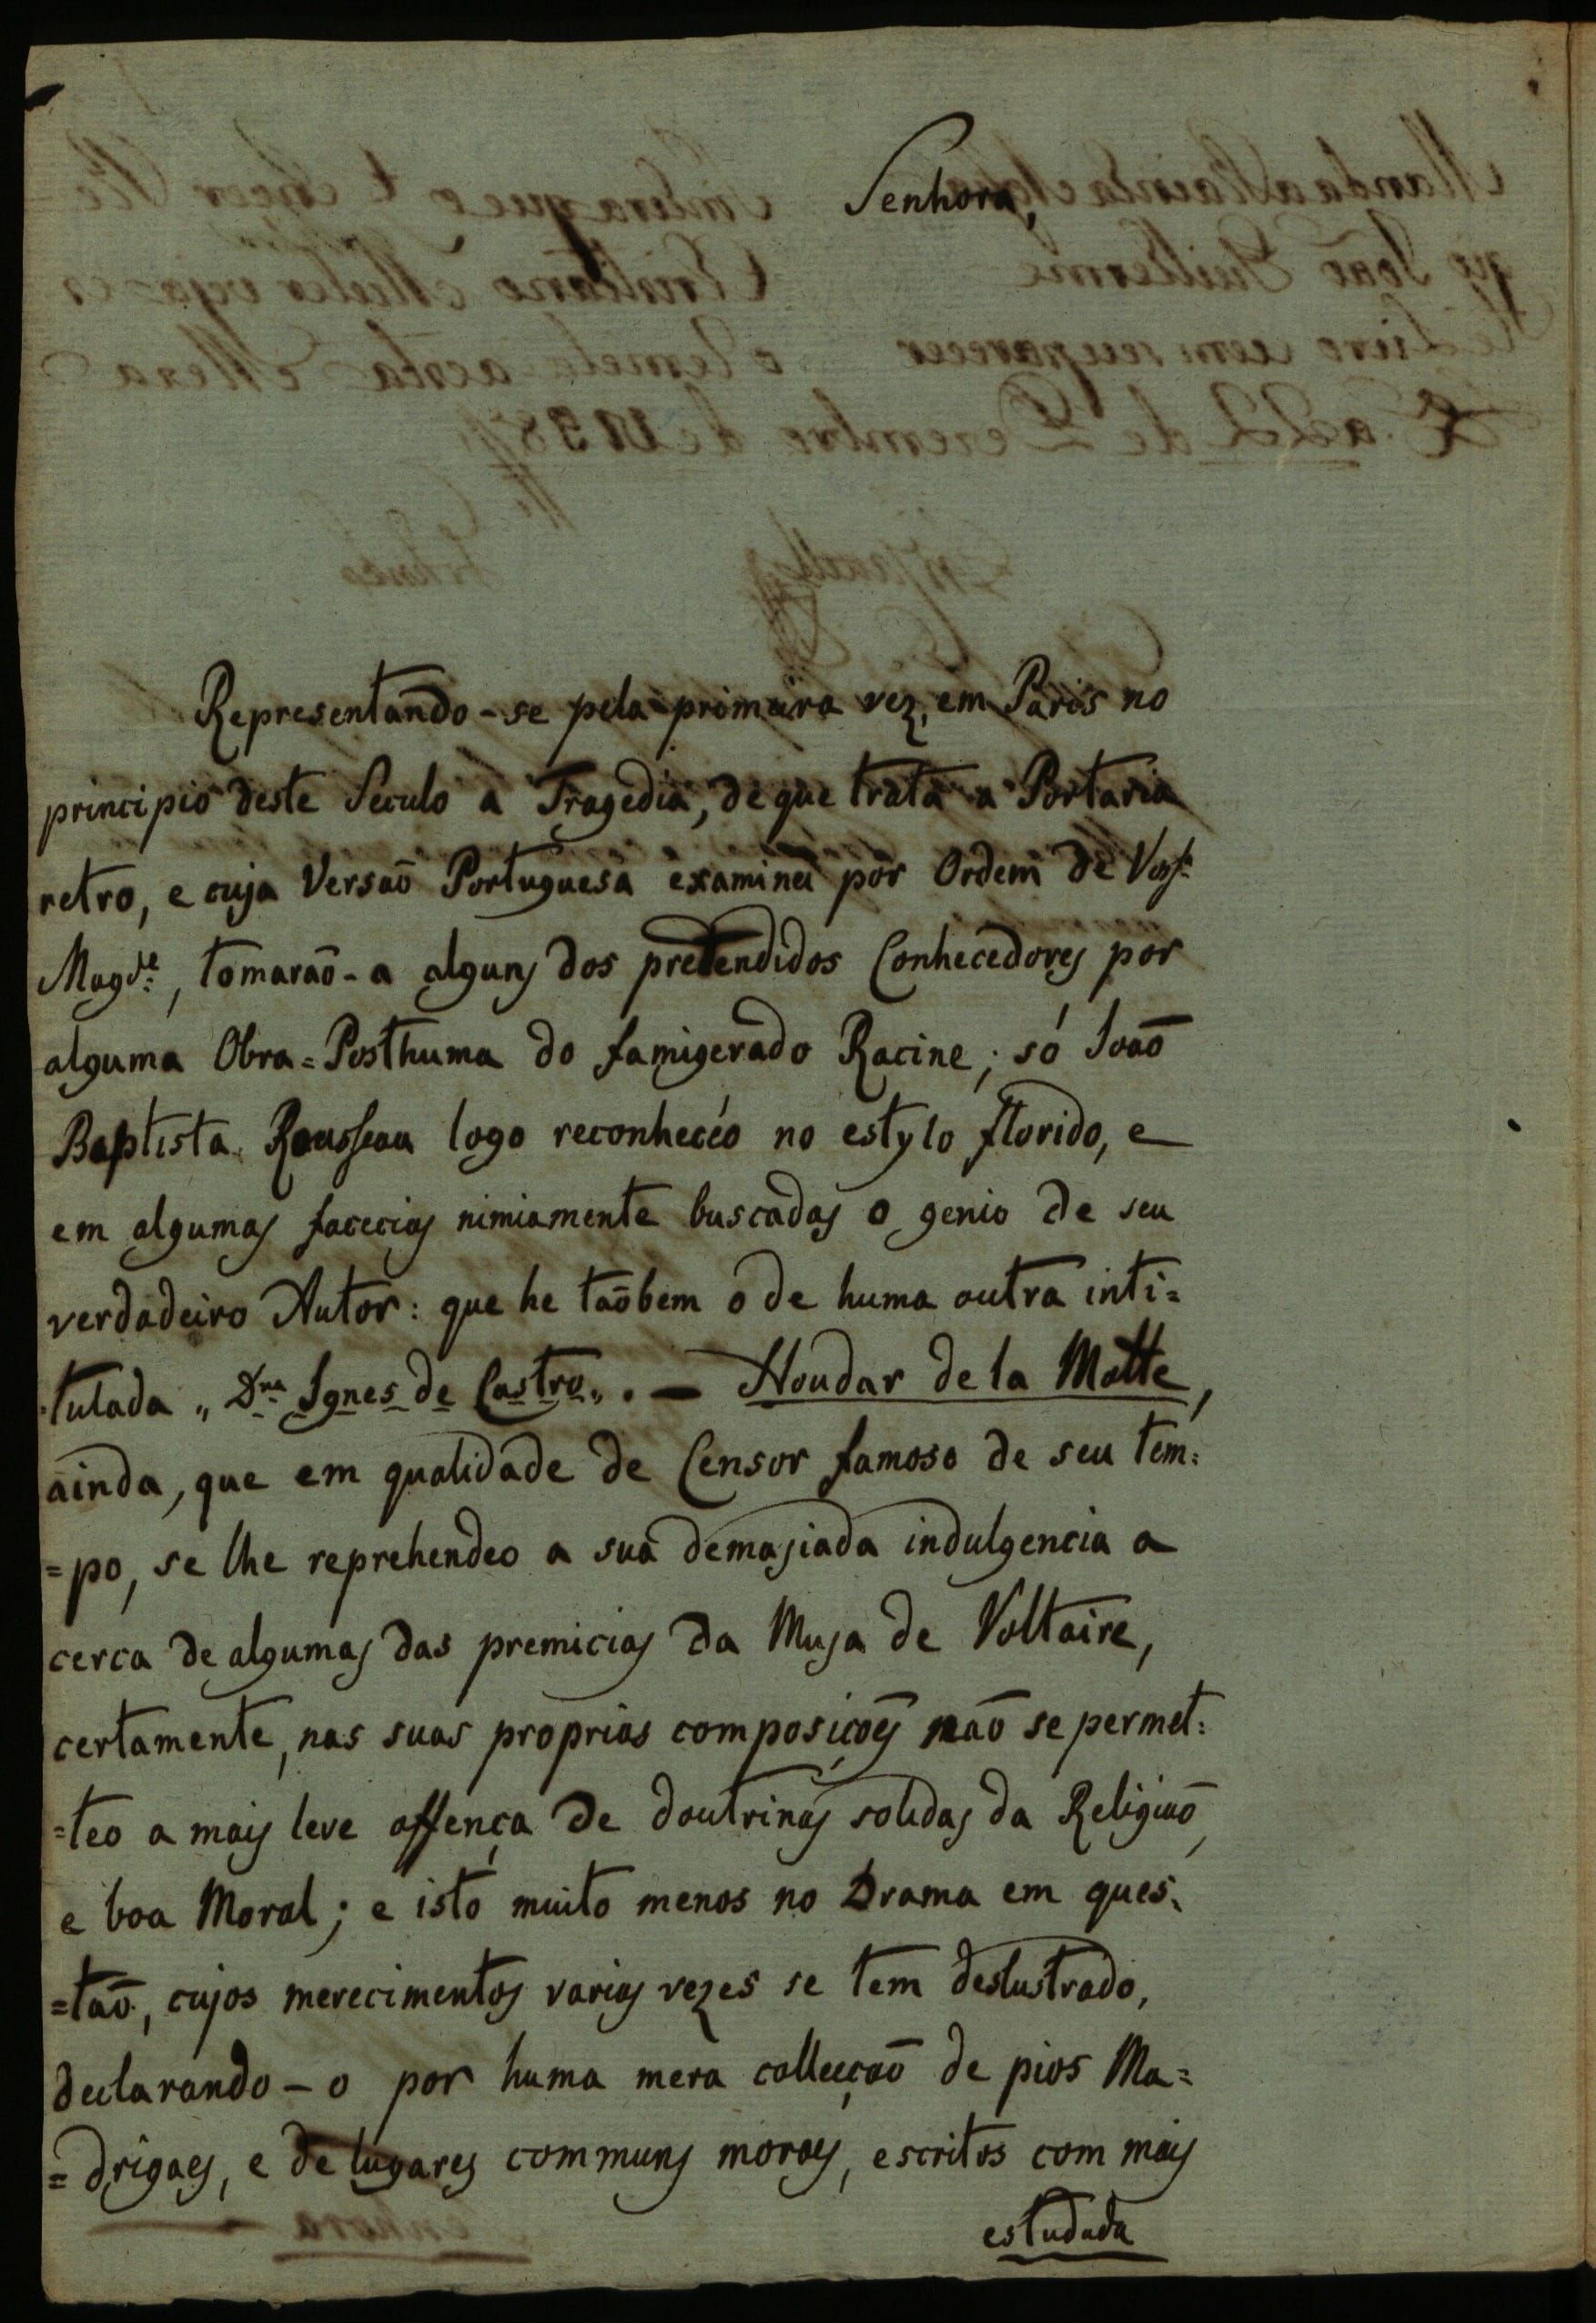 Senhora,
Representando-se pela primeira vez, em Paris no
principio deste Seculo a Tragedia, de que trata a Portaria
retro, e cuja Versaõ Portuguesa examinei por Ordem de Voss.ª
Magd.e, tomaraõ-a alguns dos pretendidos Conhecedores por
alguma Obra=Posthuma do famigerado Racine; só Joaõ
Baptista Rousseau logo reconhecéo no estylo florido, e
em algumas facecias nimiamente buscadas o genio de seu
verdadeiro Autor: que he taõbem o de huma outra inti=
tulada „ D.na Ignes de Castro„. — Houdar de la Motte,
ainda, que em qualidade de Censor famoso de seu tem=
=po, se lhe reprehendeo a sua demasiada indulgencia a
cerca de algumas das premicias da Musa de Voltaire,
certamente, nas suas proprias composiçoẽs naõ se permet=
=teo a mais leve offença de doutrinas solidas da Religiaõ,
e boa Moral; e isto muito menos no Drama em ques=
=taõ, cujos merecimentos varias vezes se tem deslustrado,
declarando-o por huma mera collecçaõ de pios Ma=
=drigaes, e de lugares communs moraes, escritos com mais
estudada